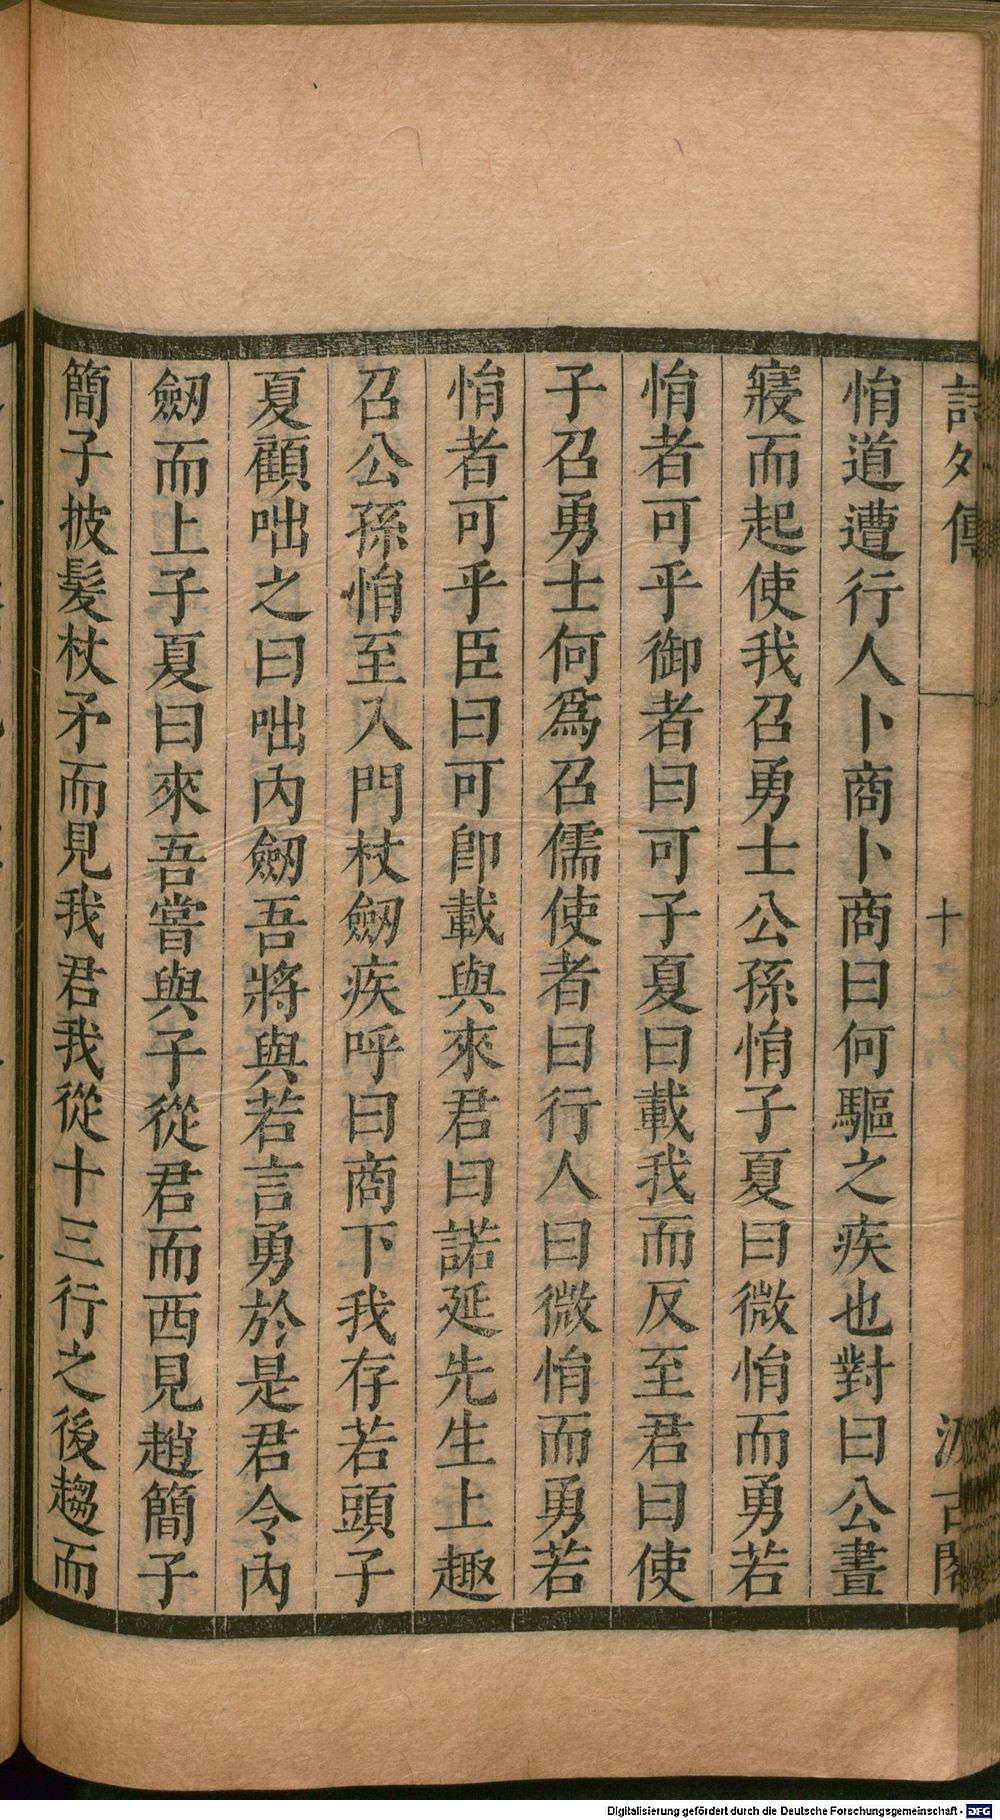 詩外傳 十之六 汲古閣
悁道遭行人卜商卜商曰何驅之疾也對曰公晝
寢而起使我召勇士公孫悁子夏曰微悁而勇若
悁者可乎御者曰可子夏曰載我而反至君曰使
子召勇士何爲召儒使者曰行人曰微悁而勇若
悁者可乎臣曰可卽載與來君曰諾延先生上趣
召公孫悁至入門杖劒疾呼曰商下我存若頭子
夏顧咄之曰咄內劒吾將與若言勇於是君令內
劒而上子夏曰來吾嘗與子從君而西見趙簡子
簡子披髮杖矛而見我君我從十三行之後趨而
Digitalisierung gefördert durch die Deutsche Forschungsgemeinschaft - DFG